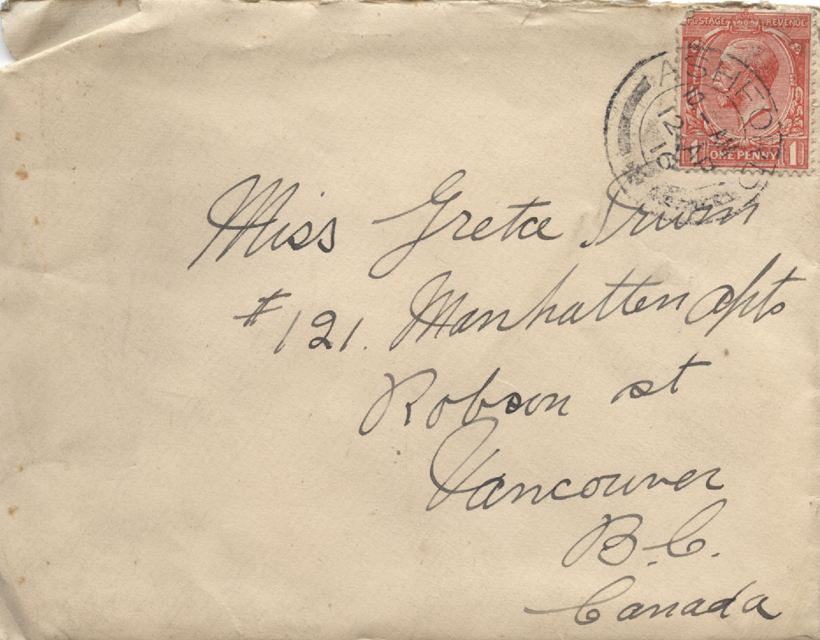 POSTAGE REVENUE
1 ONE PENNY 1
ASHFORD
12 AP
16
Miss Greta Irwin
#121. Manhatten Apts
Robson st
Vancouver
B.C.
Canada